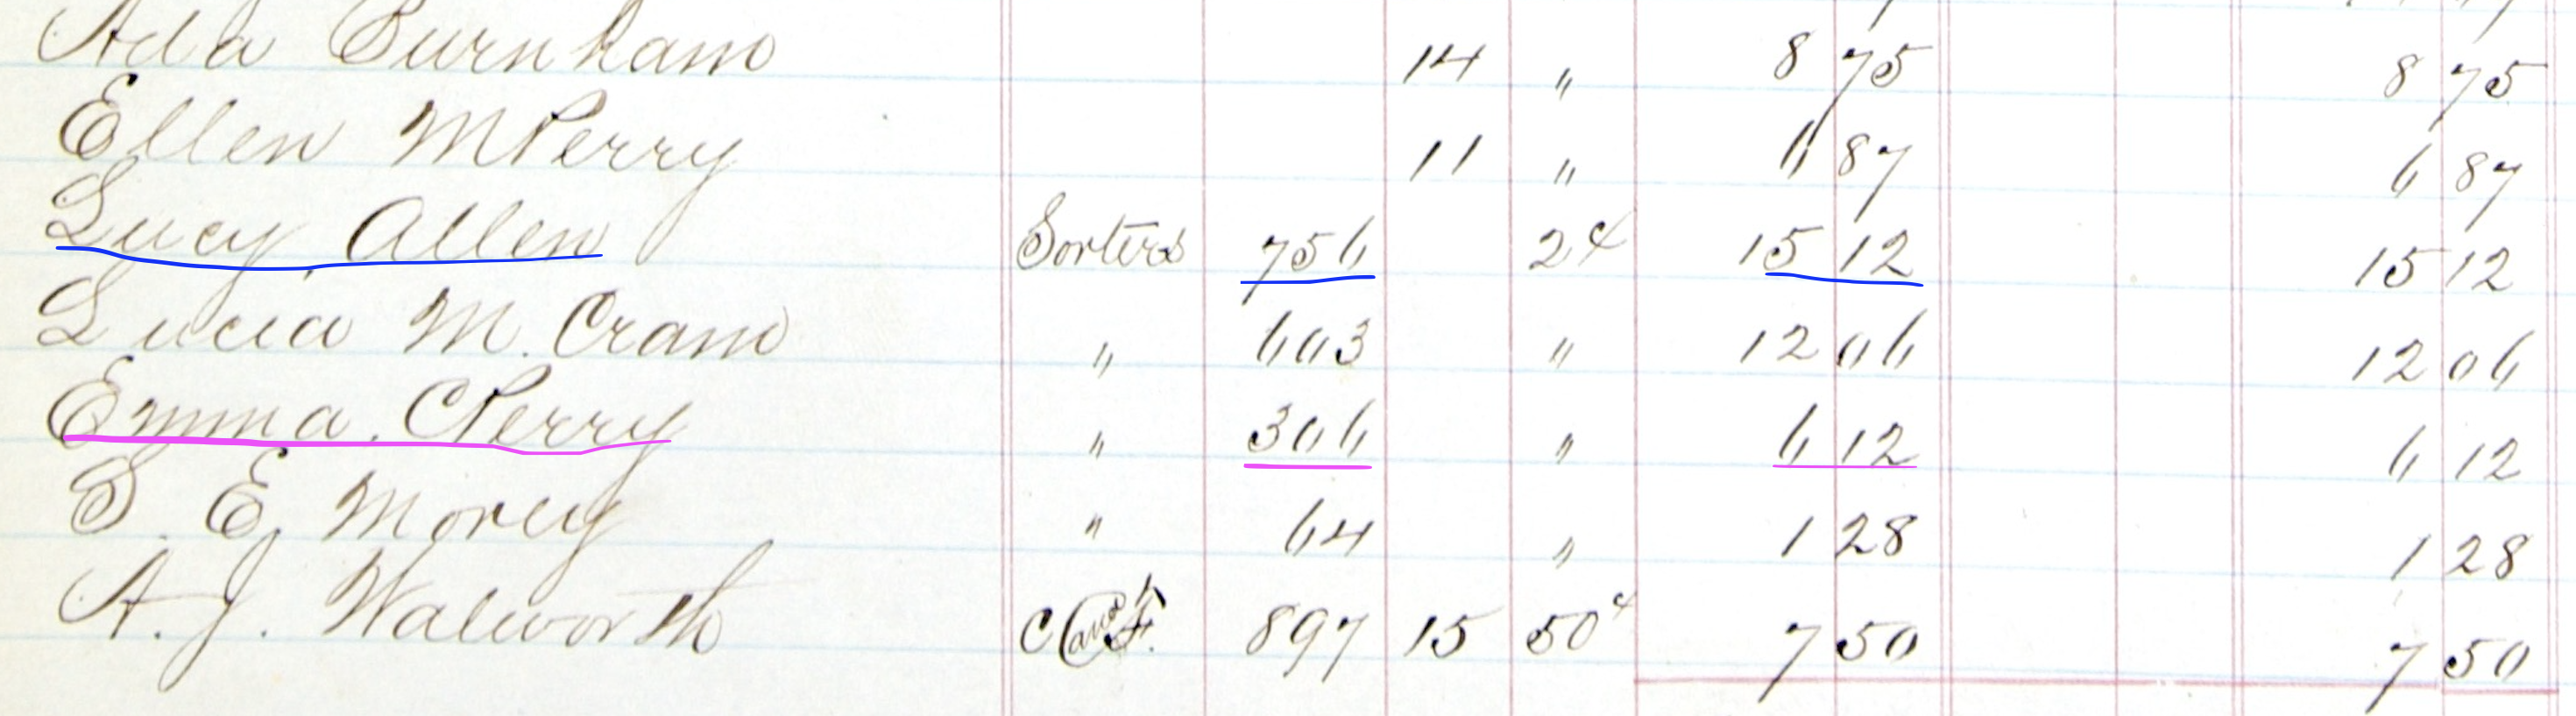 Ada Burnham 14 " 8 75 8 75
Ellen M Perry 11 " 6 87 6 87
Lucy Allen Sorters 756 2¢ 15 12 15 12
Lucia M. Cram " 603 " 12 06 12 06
Emma. C Perry " 306 " 6 12 6 12
S. E. Morey " 64 " 1 28 1 28
A. J. Walworth 897 15 50¢ 7 50 7 50